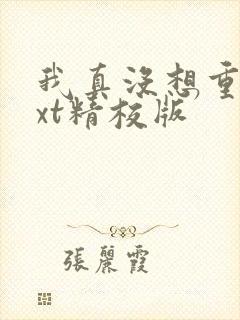 我真没想重
xt精校版
張麗霞